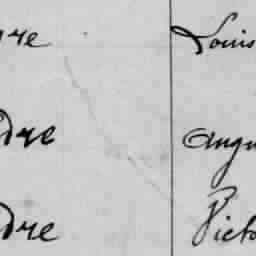 re Louis
dre Augu
dre Victo